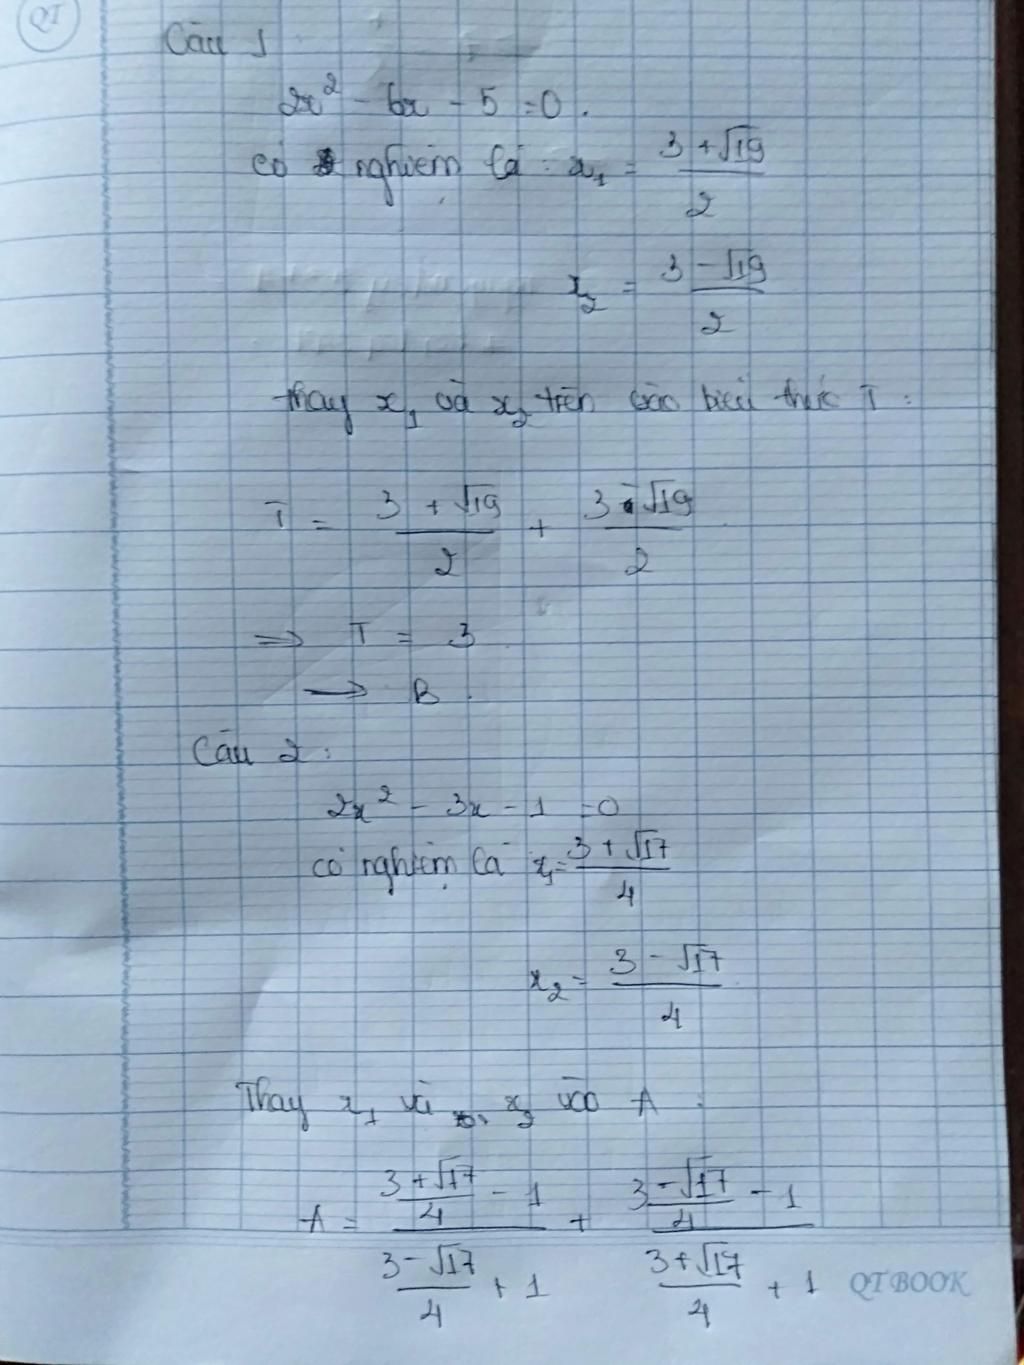 QT
Câu 1
2x² - 6x - 5 = 0.
có nghiệm là : x₁ = (3 + √19)/2
x₂ = (3 - √19)/2
thay x₁ và x₂ trên vào biểu thức T :
T = (3 + √19)/2 + (3 - √19)/2
⇒ T = 3
→ B.
Câu 2 :
2x² - 3x - 1 = 0
có nghiệm là x₁ = (3 + √17)/4
x₂ = (3 - √17)/4
Thay x₁ và x₂ vào A :
A = ((3 + √17)/4 - 1)/((3 - √17)/4 + 1) + ((3 - √17)/4 - 1)/((3 + √17)/4 + 1)
QTBOOK